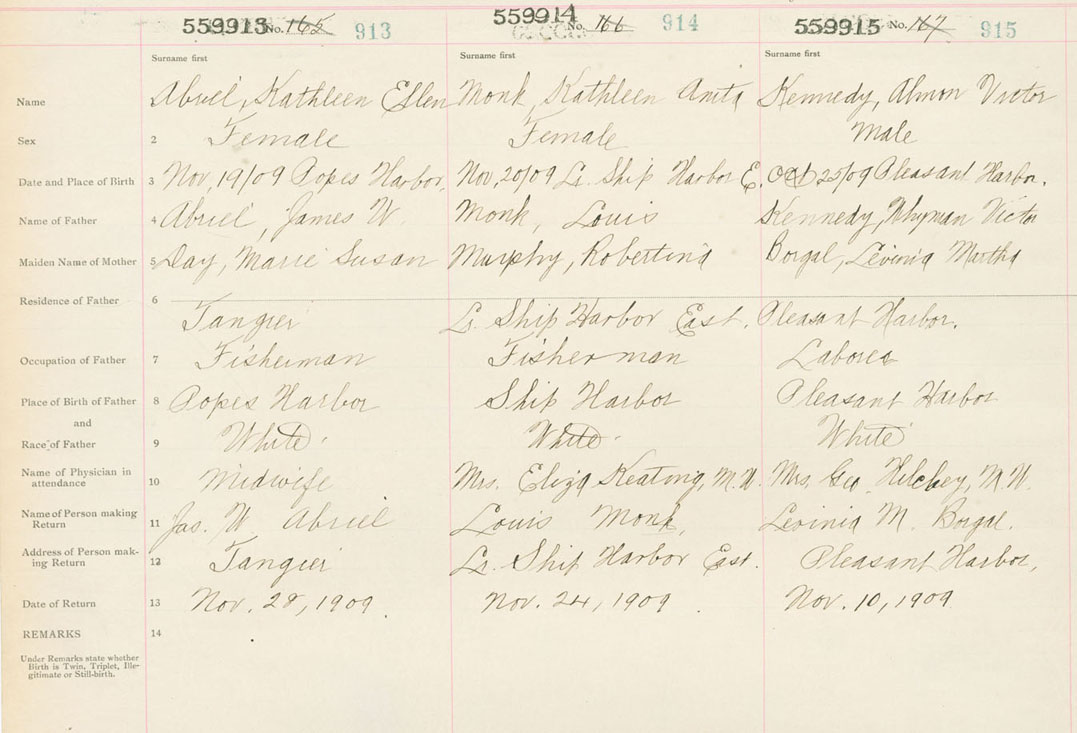 559913 No. 165 913 559914 No. 166 914 559915 No. 167 915
Surname first Surname first Surname first
Name Abriel, Kathleen Ellen Monk, Kathleen Anita Kennedy, Almon Victor
Sex 2 Female Female Male
Date and Place of Birth 3 Nov, 19/09 Popes Harbor, Nov, 20/09 Lr. Ship Harbor E. Oct 25/09 Pleasant Harbor.
Name of Father 4 Abriel, James W. Monk, Louis Kennedy, Whyman Victor
Maiden Name of Mother 5 Day, Marie Susan Murphy, Robertina Borgal, Levinia Martha
Residence of Father 6 Tangier Lr. Ship Harbor East. Pleasant Harbor.
Occupation of Father 7 Fisherman Fisherman Laborer
Place of Birth of Father 8 Popes Harbor Ship Harbor Pleasant Harbor
and
Race of Father 9 White White White
Name of Physician in
attendance 10 Midwife Mrs. Eliza Keating, M.W. Mrs. Geo. Hilchey, M.W.
Name of Person making
Return 11 Jas. W. Abriel Louis Monk, Levinia M. Borgal.
Address of Person mak-
ing Return 12 Tangier Lr. Ship Harbor East. Pleasant Harbor,
Date of Return 13 Nov. 28, 1909 Nov. 24, 1909 Nov. 10, 1909
REMARKS 14
Under Remarks state whether
Birth is Twin, Triplet, Ille-
gitimate or Still-birth.